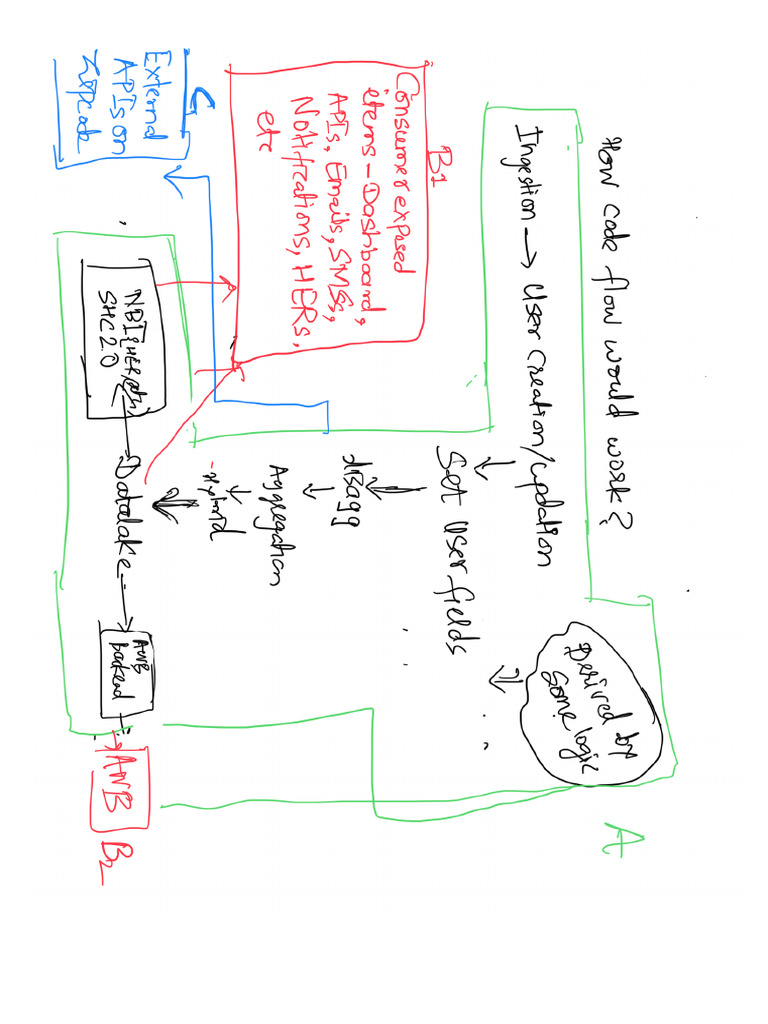 How code flow would work?
Ingestion → User creation/updation
Derived by
some logic
A
Set User fields
disagg
Aggregation
-Hybrid
Datalake
B1
Consumer exposed
items - Dashboard,
APIs, Emails, SMSs,
Notifications, HERs,
etc
External
APIs on
Zipcode
NBI
SHC 2.0
AWB
backend
AWB
B2